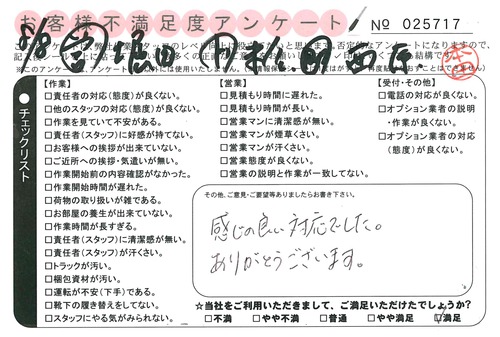 お客様不満足度アンケート
№ 025717
8/8
【作業】
□責任者の対応(態度)が良くない。
□他のスタッフの対応(態度)が良くない。
□作業を見ていて不安がある。
□責任者(スタッフ)に好感が持てない。
□お客様への挨拶が出来ていない。
□ご近所への挨拶・気遣いが無い。
□作業開始前の内容確認がなかった。
□作業開始時間が遅れた。
□荷物の取り扱いが雑である。
□お部屋の養生が出来ていない。
□作業時間が長すぎる。
□責任者(スタッフ)に清潔感が無い。
□責任者(スタッフ)が汗くさい。
□トラックが汚い。
□梱包資材が汚い。
□運転が不安(下手)である。
□靴下の履き替えをしてない。
□スタッフにやる気がみられない。
【営業】
□見積もり時間に遅れた。
□見積もり時間が長い。
□営業マンに清潔感が無い。
□営業マンが煙草くさい。
□営業マンが汗くさい。
□営業態度が良くない。
□営業の説明と作業が一致してない。
【受付・その他】
□電話の対応が良くない。
□オプション業者の説明
・作業が良くない。
□オプション業者の対応
(態度)が良くない。
チェックリスト
その他、ご意見・ご要望等ありましたらお書き下さい。
感じの良い対応でした。
ありがとうございます。
☆当社をご利用いただきまして、ご満足いただけたでしょうか?
□不満 □やや不満 □普通 □やや満足 ☑満足